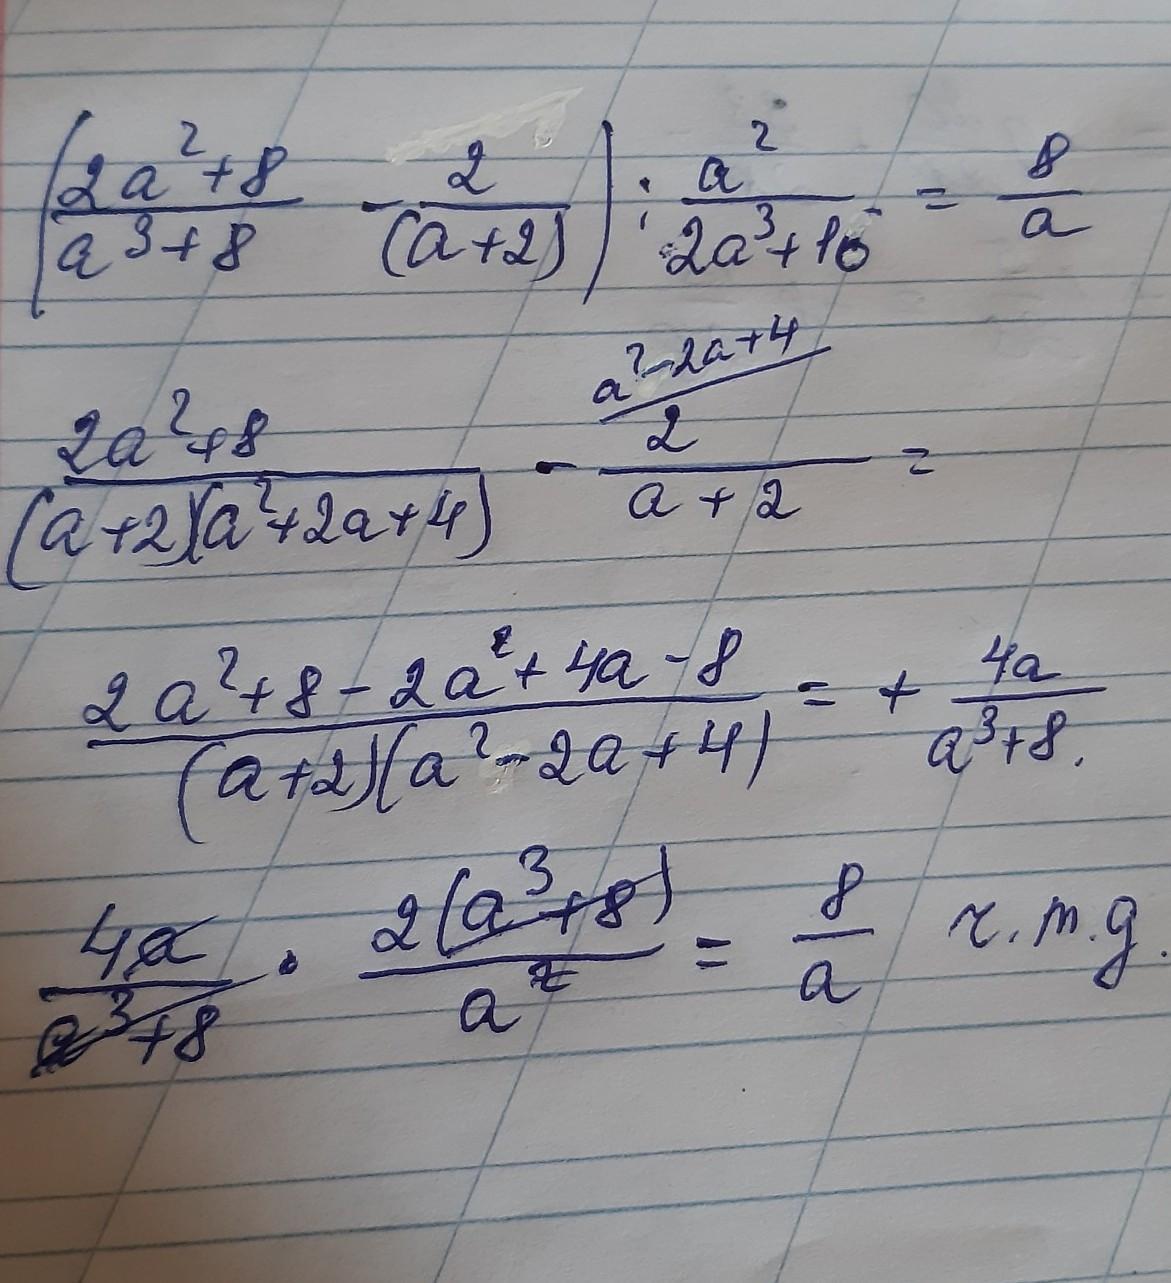 (2a²+8/a³+8 - 2/(a+2)) : a²/2a³+16 = 8/a
a²-2a+4
2a²+8/(a+2)(a²+2a+4) - 2/a+2 =
2a²+8-2a²+4a-8/(a+2)(a²-2a+4) = + 4a/a³+8.
4a/a³+8 · 2(a³+8)/a² = 8/a ч.т.д.